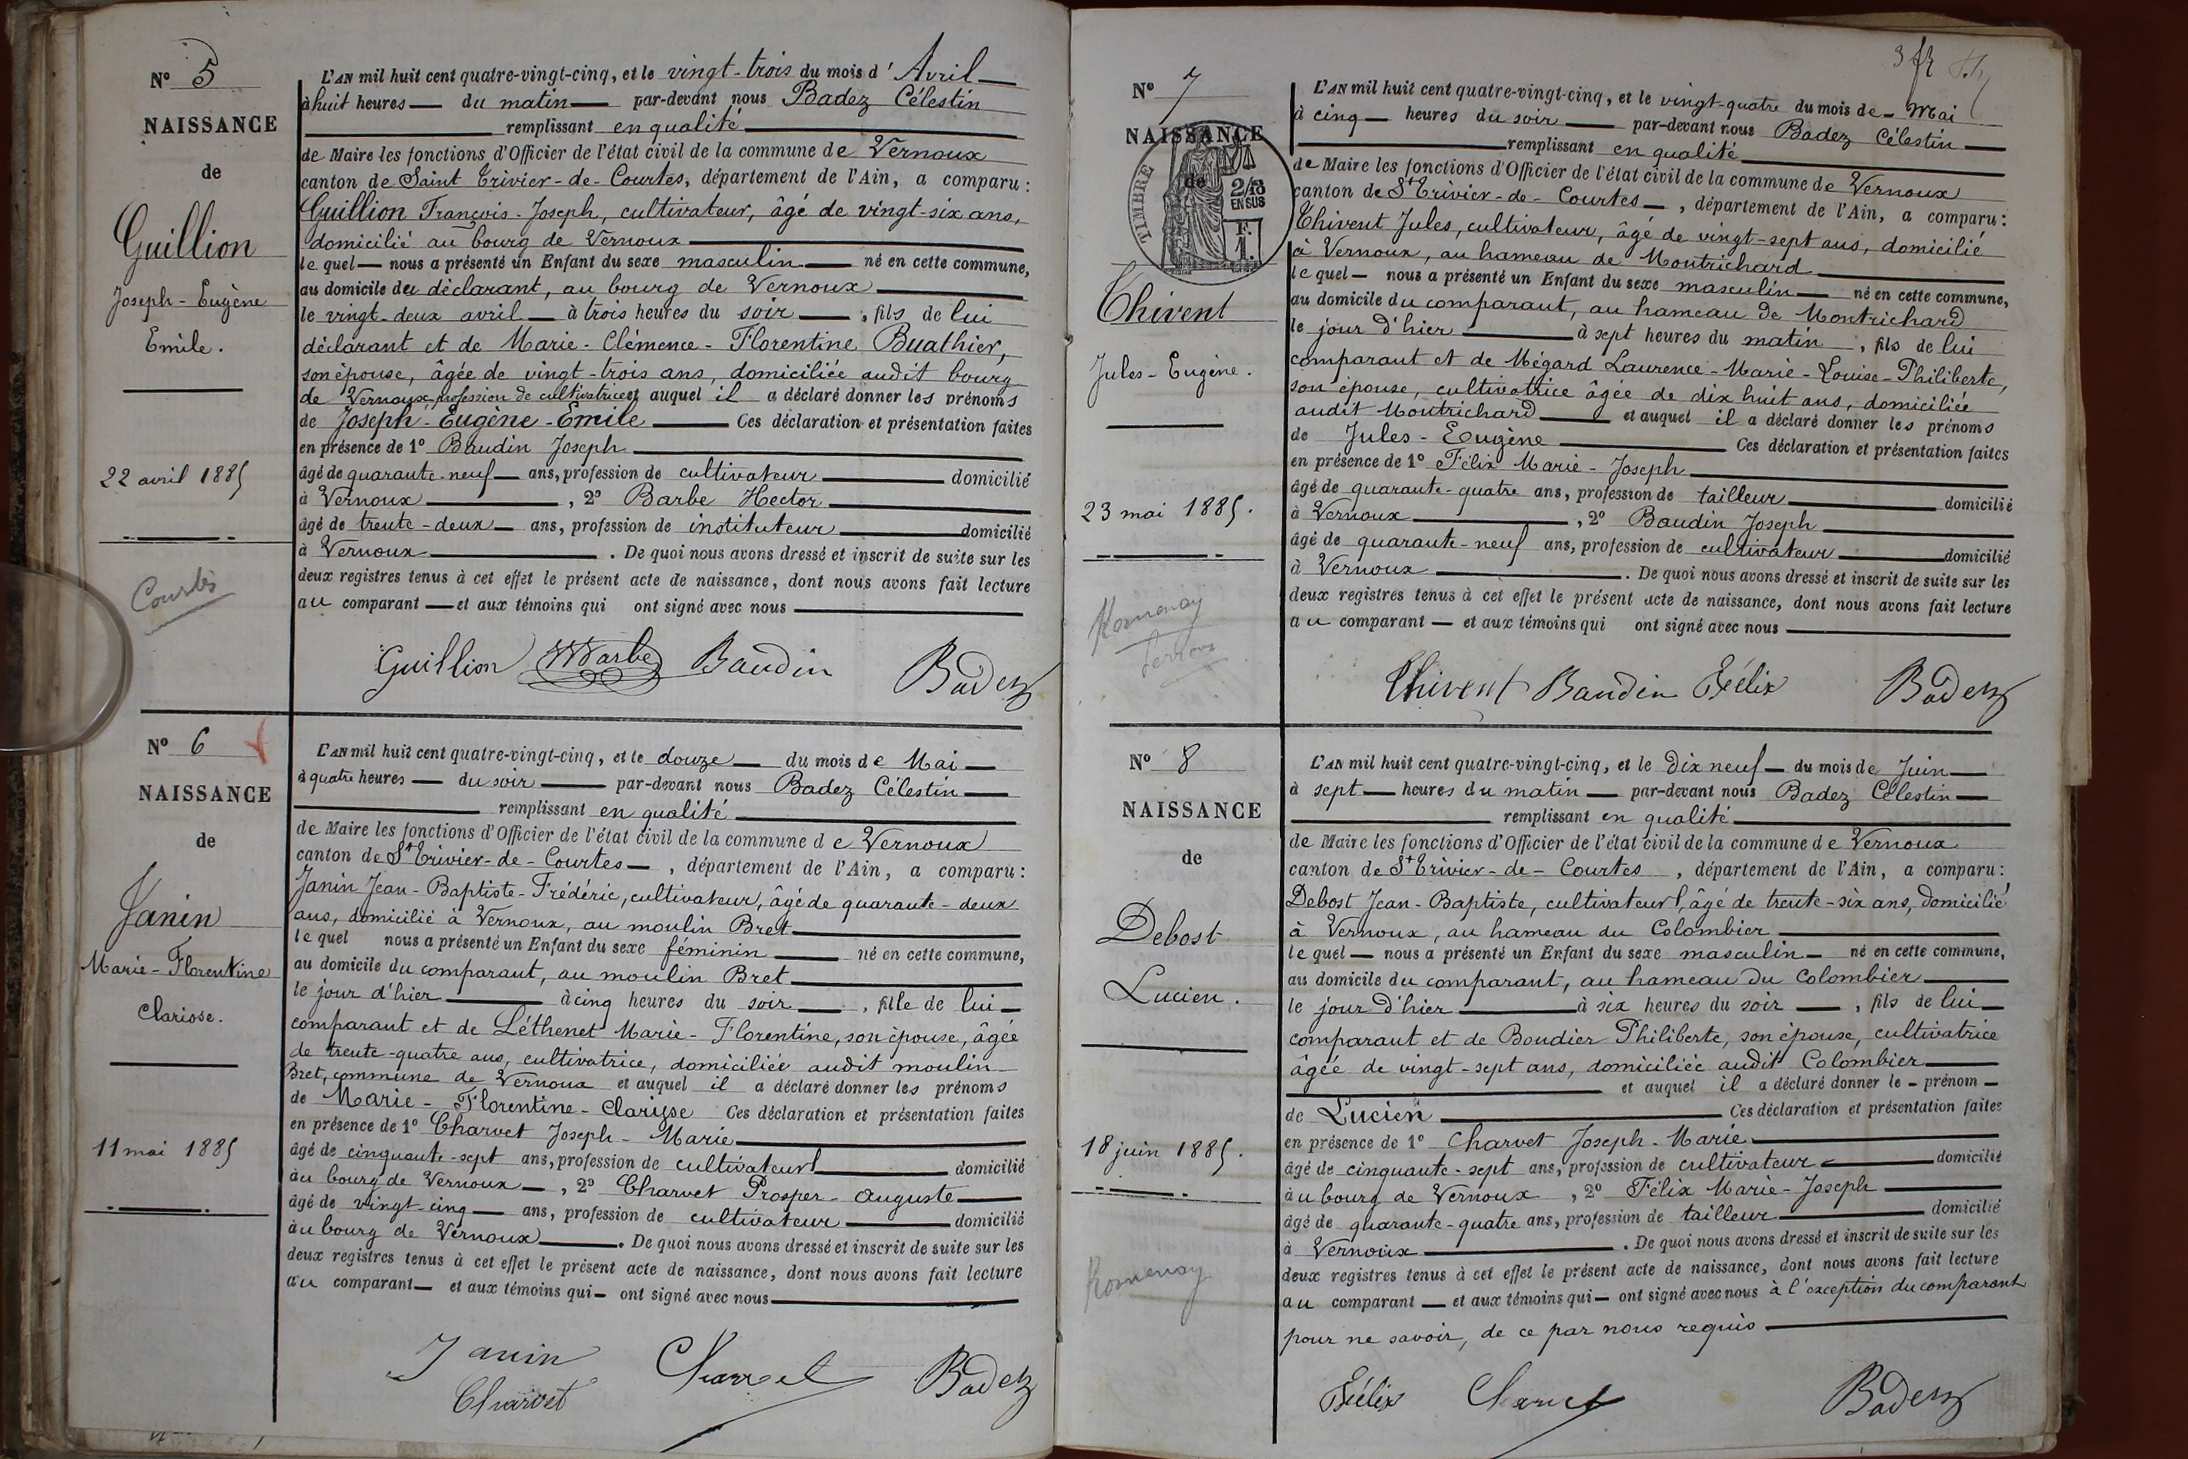 N° 5
NAISSANCE
de
Guillion
Joseph-Eugène
Emile.
22 avril 1885
Courtès
L'AN mil huit cent quatre-vingt-cinq, et le vingt-trois du mois d'Avril
à huit heures du matin par-devant nous Badez Célestin
remplissant en qualité
de Maire les fonctions d'Officier de l'état civil de la commune de Vernoux
canton de Saint Trivier-de-Courtes, département de l'Ain, a comparu:
Guillion François-Joseph, cultivateur, âgé de vingt-six ans,
domicilié au bourg de Vernoux
lequel nous a présenté un Enfant du sexe masculin né en cette commune,
au domicile du déclarant, au bourg de Vernoux
le vingt-deux avril à trois heures du soir, fils de lui
déclarant et de Marie-Clémence-Florentine Buathier,
son épouse, âgée de vingt-trois ans, domiciliée audit bourg
de Vernoux profession de cultivatrice et auquel il a déclaré donner les prénoms
de Joseph-Eugène-Emile Ces déclaration et présentation faites
en présence de 1° Baudin Joseph
âgé de quarante-neuf ans, profession de cultivateur domicilié
à Vernoux, 2° Barbe Hector
âgé de trente-deux ans, profession de instituteur domicilié
à Vernoux. De quoi nous avons dressé et inscrit de suite sur les
deux registres tenus à cet effet le présent acte de naissance, dont nous avons fait lecture
au comparant et aux témoins qui ont signé avec nous
Guillion HBarbe Baudin Badez
N° 6
NAISSANCE
de
Janin
Marie-Florentine
Clariose.
11 mai 1885
L'AN mil huit cent quatre-vingt-cinq, et le douze du mois de Mai
à quatre heures du soir par-devant nous Badez Célestin
remplissant en qualité
de Maire les fonctions d'Officier de l'état civil de la commune de Vernoux
canton de St Trivier-de-Courtes, département de l'Ain, a comparu:
Janin Jean-Baptiste-Frédéric, cultivateur, âgé de quarante-deux
ans, domicilié à Vernoux, au moulin Bret
lequel nous a présenté un Enfant du sexe féminin né en cette commune,
au domicile du comparant, au moulin Bret
le jour d'hier à cinq heures du soir, fille de lui
comparant et de Léthenet Marie-Florentine, son épouse, âgée
de trente-quatre ans, cultivatrice, domiciliée audit moulin
Bret, commune de Vernoux et auquel il a déclaré donner les prénoms
de Marie-Florentine-Clarisse Ces déclaration et présentation faites
en présence de 1° Charvet Joseph-Marie
âgé de cinquante-sept ans, profession de cultivateur domicilié
au bourg de Vernoux, 2° Charvet Prosper-Auguste
âgé de vingt-cinq ans, profession de cultivateur domicilié
au bourg de Vernoux. De quoi nous avons dressé et inscrit de suite sur les
deux registres tenus à cet effet le présent acte de naissance, dont nous avons fait lecture
au comparant et aux témoins qui ont signé avec nous
Janin Charvet Badez
Charvet
3 fr
N° 7
NAISSANCE
de
TIMBRE
2/10
EN SUS
F.
1.
Thivent
Jules-Eugène.
23 mai 1885.
Romenay
L'AN mil huit cent quatre-vingt-cinq, et le vingt-quatre du mois de Mai
à cinq heures du soir par-devant nous Badez Célestin
remplissant en qualité
de Maire les fonctions d'Officier de l'état civil de la commune de Vernoux
canton de St Trivier-de-Courtes, département de l'Ain, a comparu:
Thivent Jules, cultivateur, âgé de vingt-sept ans, domicilié
à Vernoux, au hameau de Montrichard
lequel nous a présenté un Enfant du sexe masculin né en cette commune,
au domicile du comparant, au hameau de Montrichard
le jour d'hier à sept heures du matin, fils de lui
comparant et de Mégard Laurence-Marie-Louise-Philiberte,
son épouse, cultivatrice âgée de dix huit ans, domiciliée
audit Montrichard et auquel il a déclaré donner les prénoms
de Jules-Eugène Ces déclaration et présentation faites
en présence de 1° Félix Marie-Joseph
âgé de quarante-quatre ans, profession de tailleur domicilié
à Vernoux, 2° Baudin Joseph
âgé de quarante-neuf ans, profession de cultivateur domicilié
à Vernoux. De quoi nous avons dressé et inscrit de suite sur les
deux registres tenus à cet effet le présent acte de naissance, dont nous avons fait lecture
au comparant et aux témoins qui ont signé avec nous
Thivent Baudin Félix Badez
N° 8
NAISSANCE
de
Debost
Lucien.
18 juin 1885.
Romenay
L'AN mil huit cent quatre-vingt-cinq, et le dix neuf du mois de Juin
à sept heures du matin par-devant nous Badez Célestin
remplissant en qualité
de Maire les fonctions d'Officier de l'état civil de la commune de Vernoux
canton de St Trivier-de-Courtes, département de l'Ain, a comparu:
Debost Jean-Baptiste, cultivateur, âgé de trente-six ans, domicilié
à Vernoux, au hameau du Colombier
lequel nous a présenté un Enfant du sexe masculin né en cette commune,
au domicile du comparant, au hameau du Colombier
le jour d'hier à six heures du soir, fils de lui
comparant et de Boudier Philiberte, son épouse, cultivatrice
âgée de vingt-sept ans, domiciliée audit Colombier
et auquel il a déclaré donner le prénom
de Lucien Ces déclaration et présentation faites
en présence de 1° Charvet Joseph-Marie
âgé de cinquante-sept ans, profession de cultivateur domicilié
au bourg de Vernoux, 2° Félix Marie-Joseph
âgé de quarante-quatre ans, profession de tailleur domicilié
à Vernoux. De quoi nous avons dressé et inscrit de suite sur les
deux registres tenus à cet effet le présent acte de naissance, dont nous avons fait lecture
au comparant et aux témoins qui ont signé avec nous à l'exception du comparant
pour ne savoir, de ce par nous requis
Félix Charvet Badez